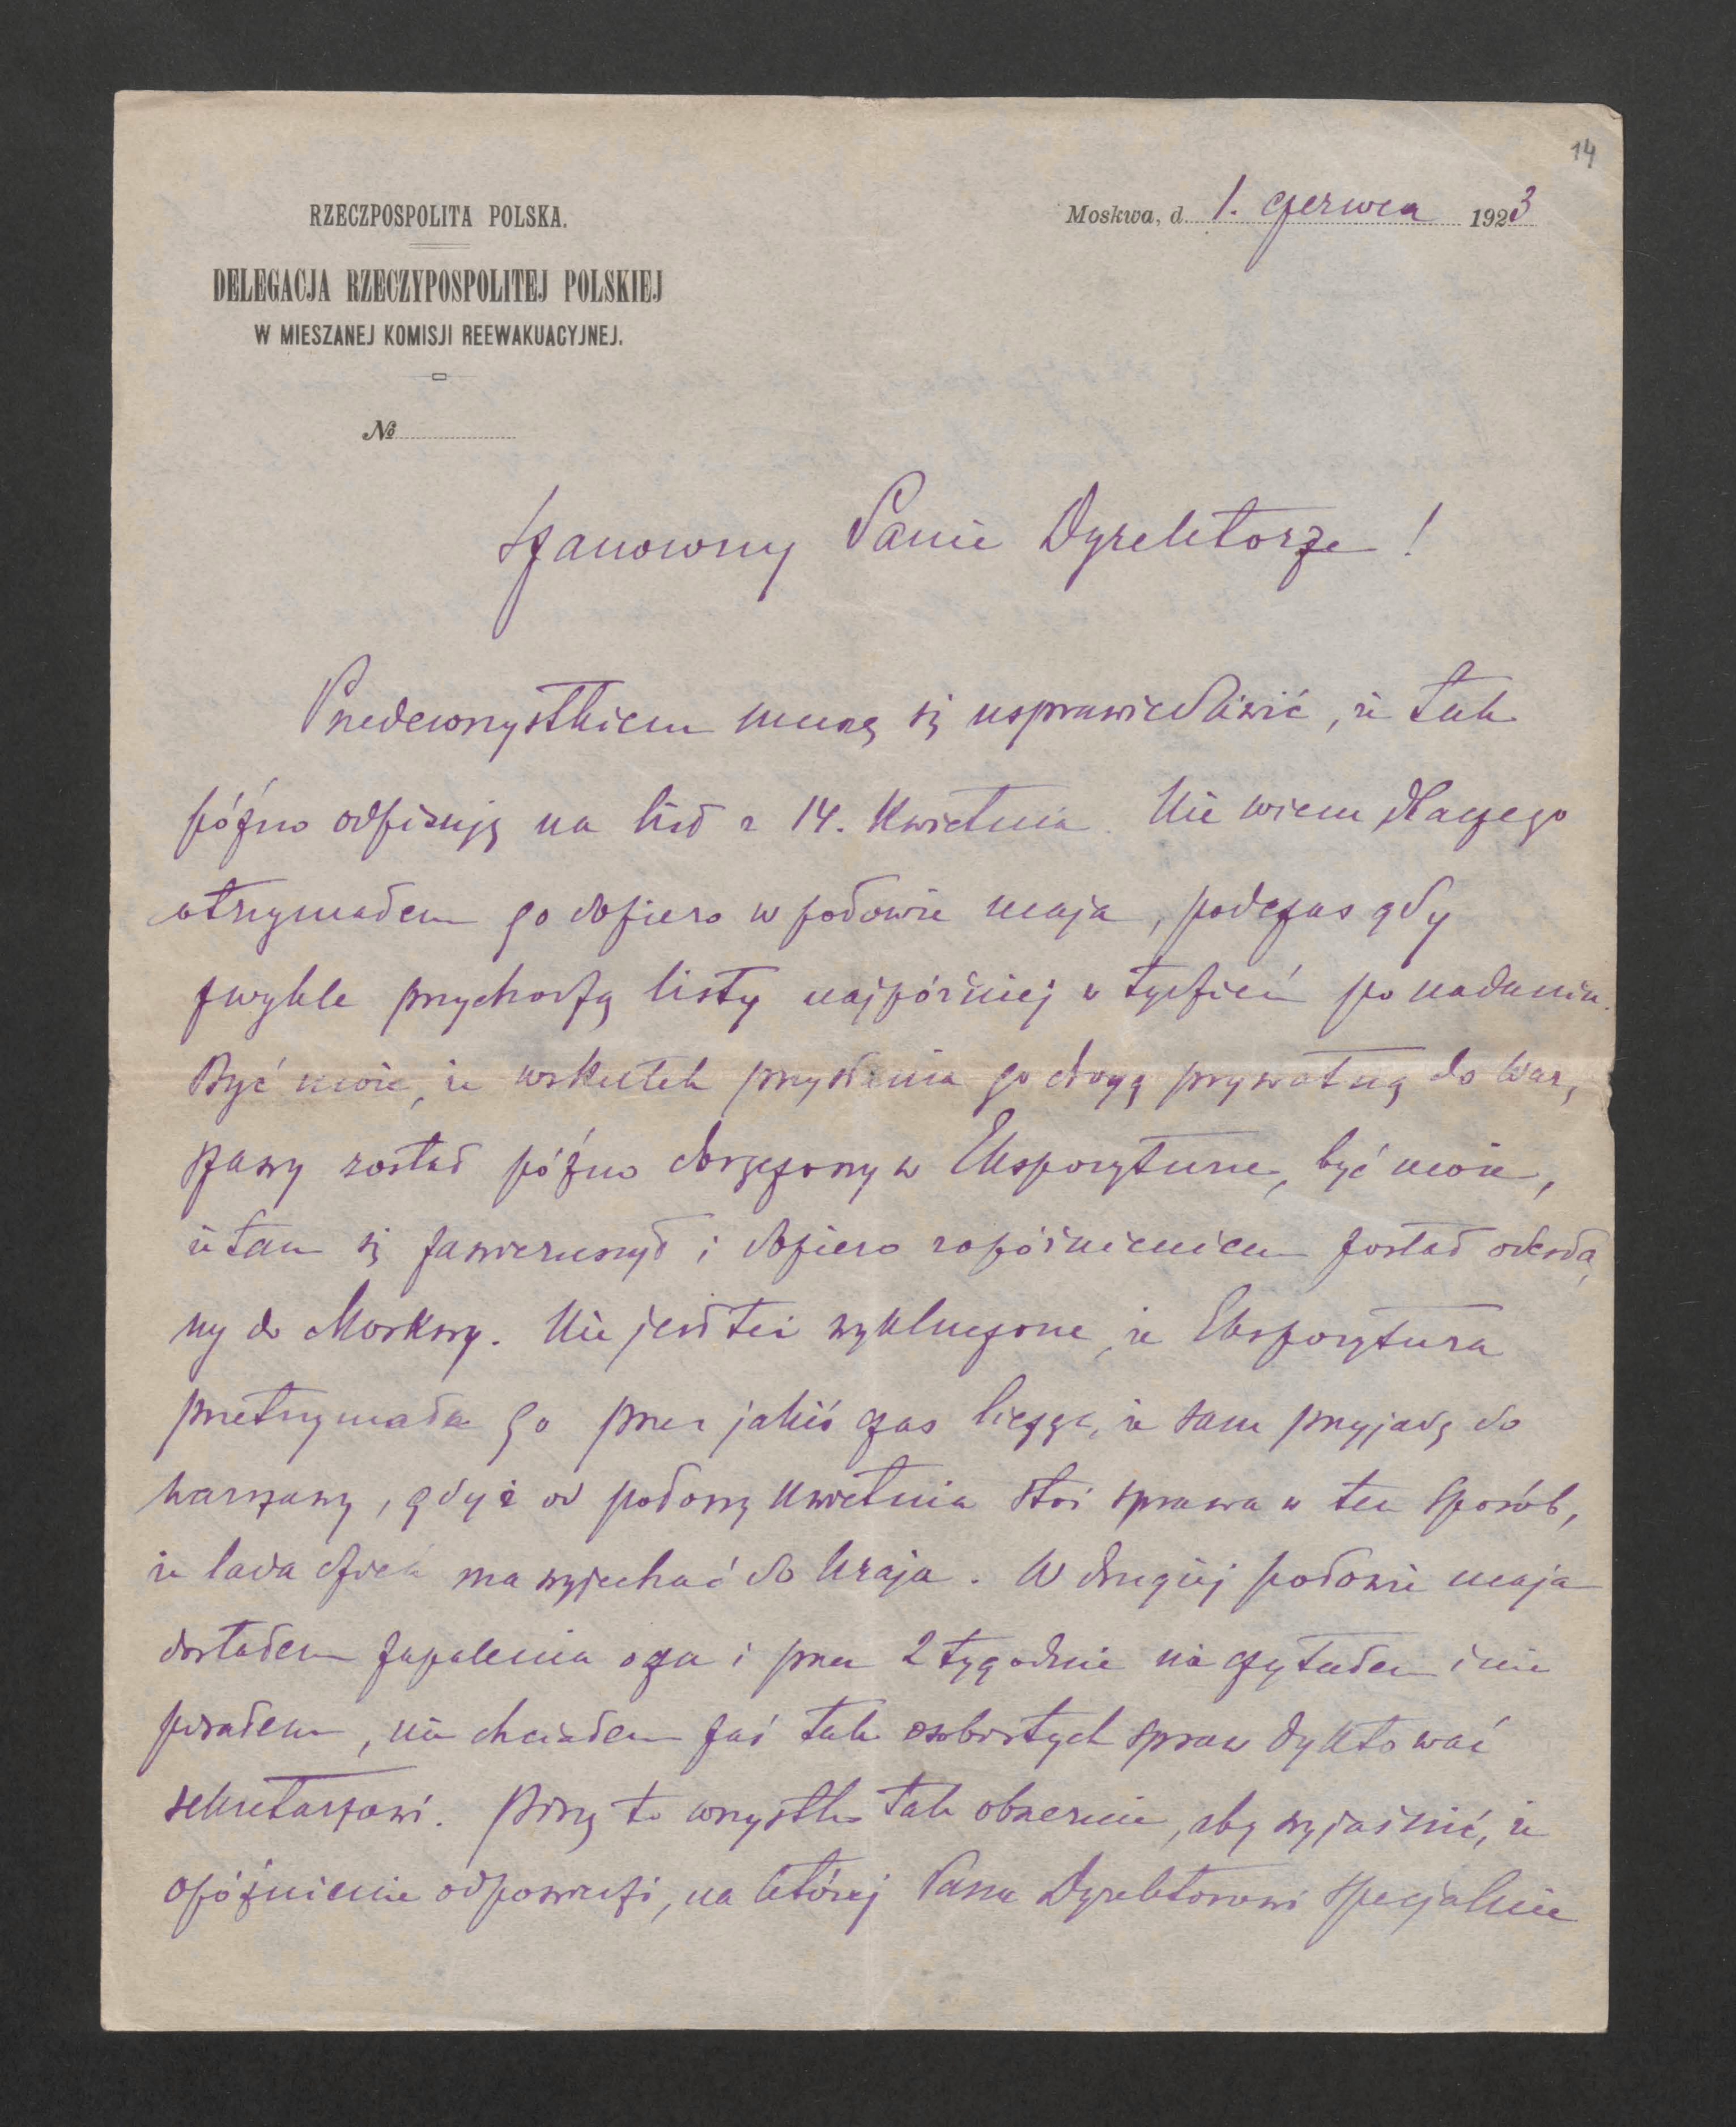 14
RZECZPOSPOLITA POLSKA.
Moskwa, d. 1. czerwca 1923
DELEGACJA RZECZYPOSPOLITEJ POLSKIEJ
W MIESZANEJ KOMISJI REEWAKUACYJNEJ.
№
Szanowny Panie Dyrektorze!
Przedewszystkiem muszę się usprawiedliwić, że tak
późno odpisuję na list z 14. kwietnia. Nie wiem dlaczego
otrzymałem go dopiero w połowie maja, podczas gdy
zwykle przychodzą listy najpóźniej w tydzień po nadaniu.
Być może, że wskutek przysłania go drogą prywatną do War,
szawy został późno doręczony w Ekspozyturze, być może,
że tam się zawieruszył i dopiero z opóźnieniem został odesła,
ny do Moskwy. Nie jest też wykluczone, że Ekspozytura
przetrzymała go przez jakiś czas licząc, że sam przyjadę do
Warszawy, gdyż od połowy kwietnia stoi sprawa w ten sposób,
że lada dzień ma wyjechać do kraja. W drugiej połowie maja
dostałem zapalenia oza i przez 2 tygodnie nie czytałem i nie
pisałem, nie chciałem zaś tak osobistych spraw dyktować
sekretarzowi. Piszę to wszystko tak obszernie, aby wyjaśnić, że
opóźnienie odpowiedzi, na której Panu Dyrektorowi specjalnie